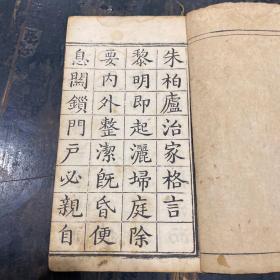 朱柏廬治家格言
黎明即起灑掃庭除
要内外整潔既昏便
息關鎖門戶必親自